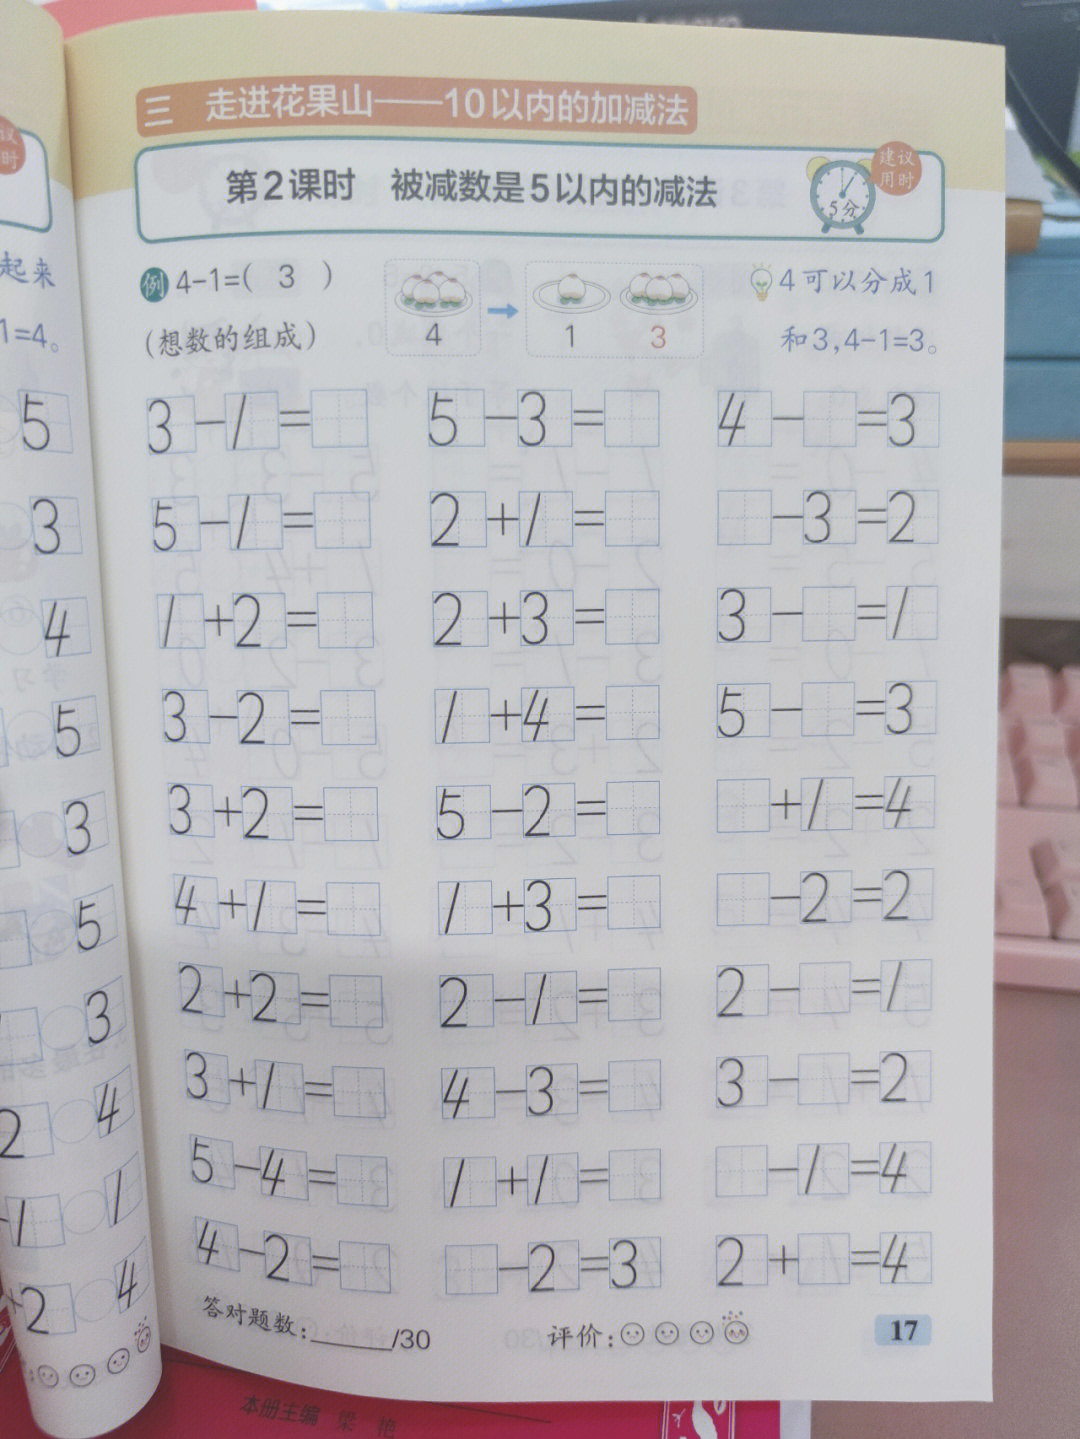 三 走进花果山——10以内的加减法
第2课时 被减数是5以内的减法
建议
用时
5分
例 4-1=( 3 )
(想数的组成)
4
1 3
4可以分成1
和3,4-1=3。
3-1=
5-3=
4- =3
5-1=
2+1=
-3=2
1+2=
2+3=
3- =1
3-2=
1+4=
5- =3
3+2=
5-2=
+1=4
4+1=
1+3=
-2=2
2+2=
2-1=
2- =1
3+1=
4-3=
3- =2
5-4=
1+1=
-1=4
4-2=
-2=3
2+ =4
答对题数:______/30
评价:
17
起来
1=4。
5
3
4
5
3
5
3
2 4
1 1
+2 4
本册主编 梁 艳